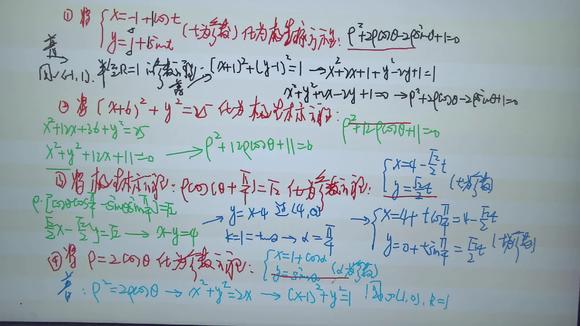 ① 将 { x=-1+1cost
y=1+1sint (t为参数) 化为极坐标方程: ρ²+2ρcosθ-2ρsinθ+1=0
圆(-1,1). 半径R=1 的参数方程. (x+1)²+(y-1)²=1 → x²+2x+1+y²-2y+1=1
x²+y²+2x-2y+1=0 → ρ²+2ρcosθ-2ρsinθ+1=0
② 将 (x+6)²+y²=25 化为极坐标方程: ρ²+12ρcosθ+11=0
x²+12x+36+y²=25
x²+y²+12x+11=0 → ρ²+12ρcosθ+11=0
将极坐标方程: ρcos(θ+π/4)=√2 化为参数方程: { x=4-√2/2t
y=√2/2t (t为参数)
ρ·[cosθcosπ/4-sinθsinπ/4]=√2
√2/2x-√2/2y=√2 → x-y=4
→ y=x-4 过(4,0)
k=1=tanα → α=π/4
→ { x=4+tcosπ/4=4-√2/2t
y=0+tsinπ/4=√2/2t (t为参数)
④ 将 ρ=2cosθ 化为参数方程: { x=1+cosα
y=sinα (α为参数)
ρ²=2ρcosθ → x²+y²=2x → (x-1)²+y²=1